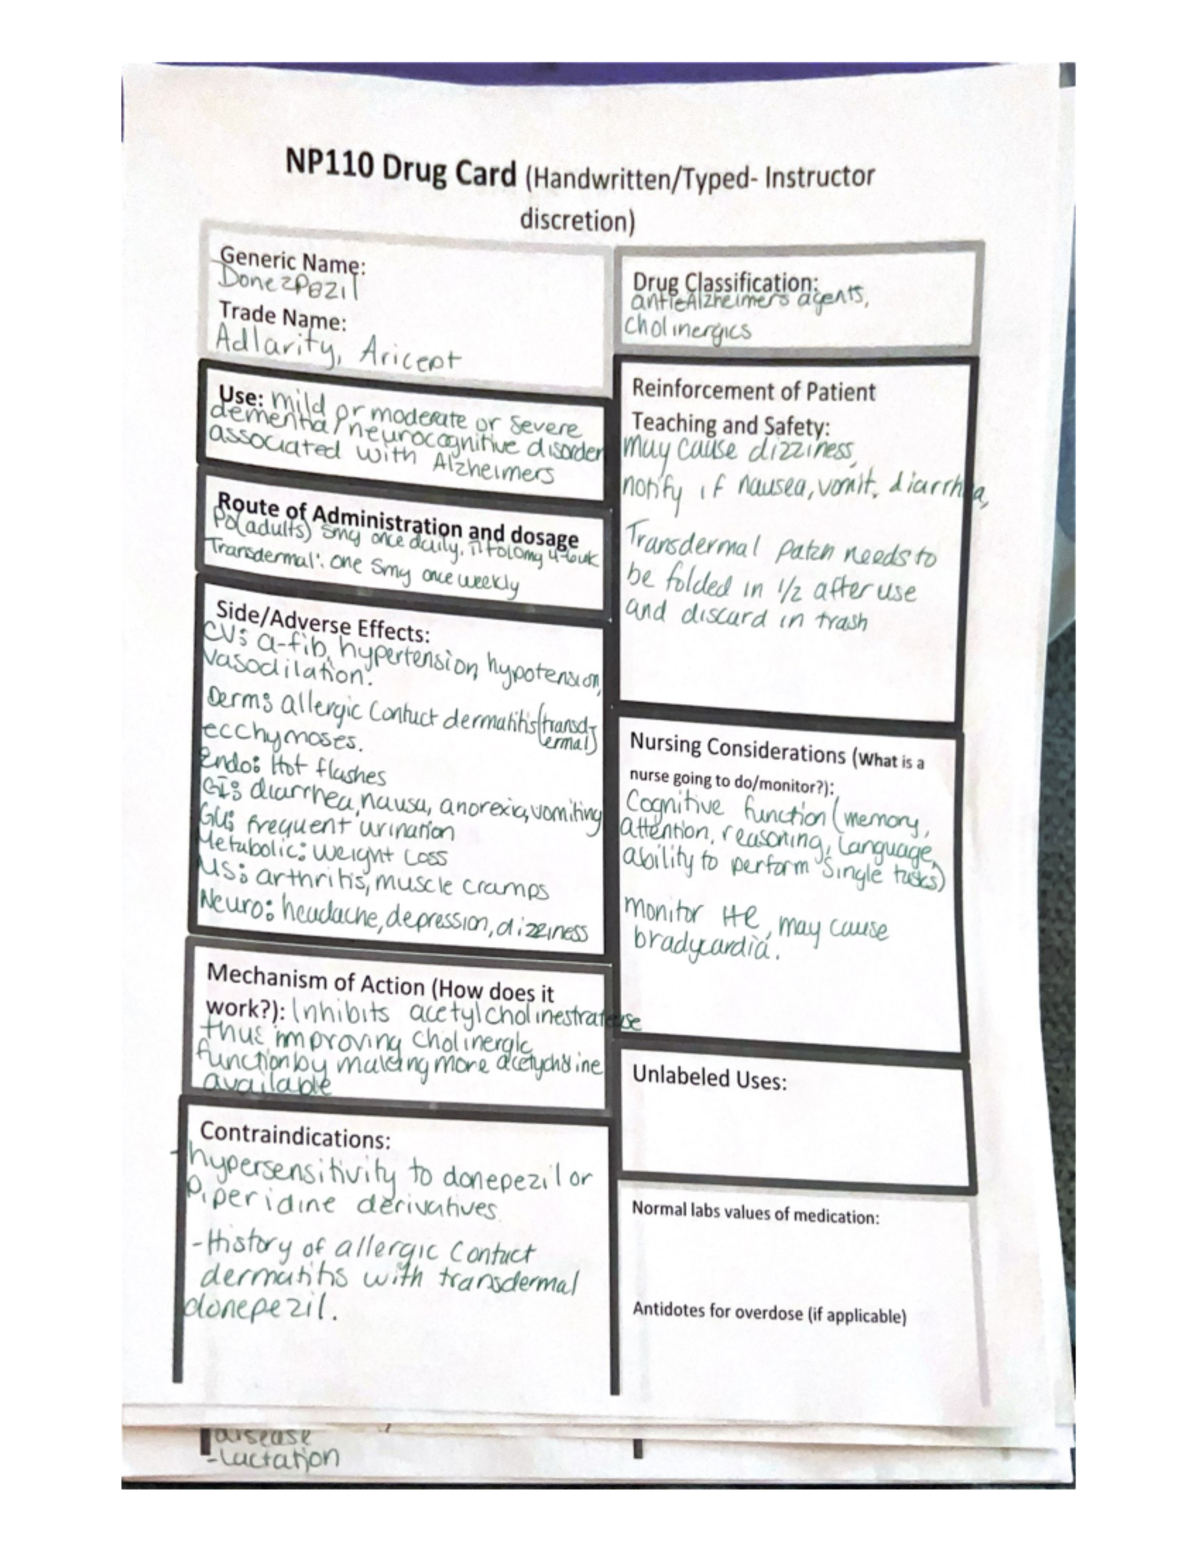 NP110 Drug Card (Handwritten/Typed- Instructor
discretion)
Generic Name:
Donezpezil
Trade Name:
Adlarity, Aricept
Use: mild or moderate or severe
dementia/neurocognitive disorder
associated with Alzheimers
Route of Administration and dosage
PO(adults) 5mg once daily, 4-6wk
Transdermal: one 5mg once weekly
Side/Adverse Effects:
CV: a-fib, hypertension, hypotension,
vasodilation.
Derm: allergic contact dermatitis (transd-
ermal)
ecchymoses.
Endo: Hot flashes
GI: diarrhea, nausa, anorexia, vomiting
GU: frequent urination
Metabolic: weight loss
MS: arthritis, muscle cramps
Neuro: headache, depression, dizziness
Mechanism of Action (How does it
work?): Inhibits acetylcholinestratease
thus improving cholinergic
function by making more
available
Contraindications:
-hypersensitivity to donepezil or
piperidine derivatives
-History of allergic contact
dermatitis with transdermal
donepezil.
Drug Classification:
antieAlzheimers agents,
cholinergics
Reinforcement of Patient
Teaching and Safety:
may cause dizziness,
notify if nausea, vomit, diarrhea,
Transdermal patch needs to
be folded in 1/2 after use
and discard in trash
Nursing Considerations (What is a
nurse going to do/monitor?):
Cognitive function (memory,
attention, reasoning, language,
ability to perform single tasks)
monitor HR, may cause
bradycardia.
Unlabeled Uses:
Normal labs values of medication:
Antidotes for overdose (if applicable)
disease
-Lactation